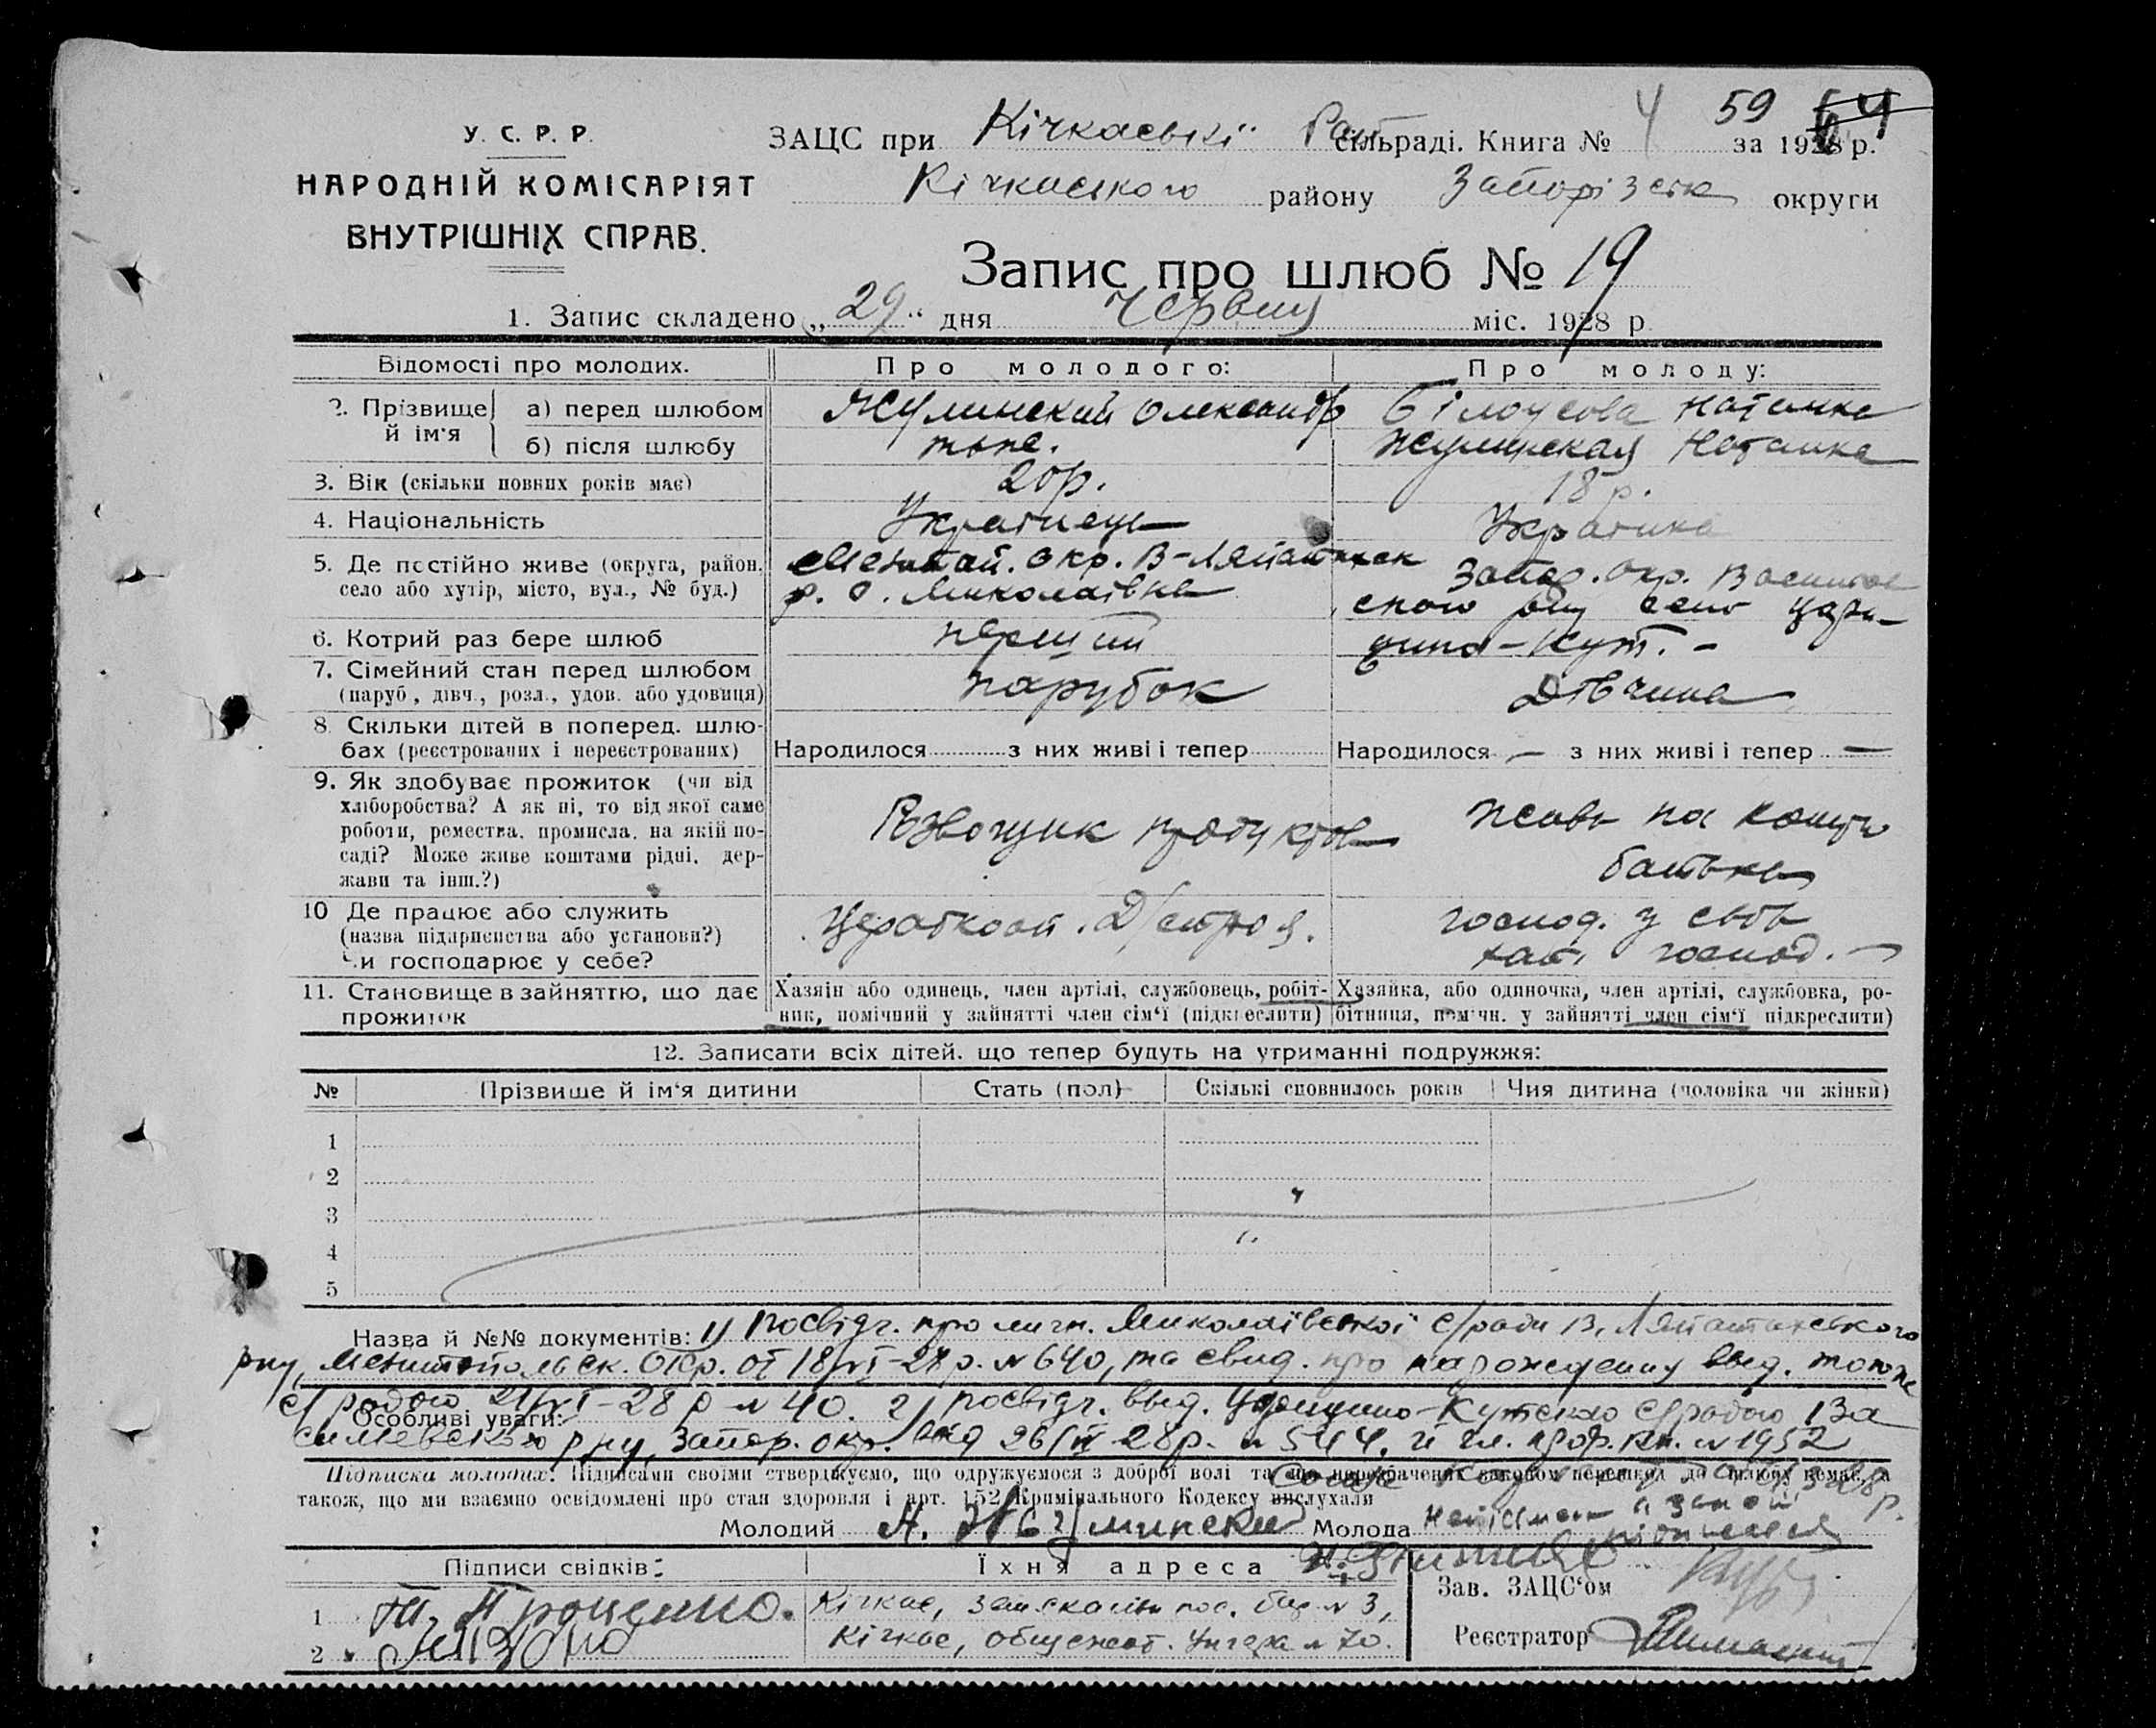 У. С. Р. Р.
НАРОДНІЙ КОМІСАРІЯТ
ВНУТРІШНІХ СПРАВ.
59
ЗАЦС при Кічкаській сільраді. Книга № 4 за 1928 р.
Кічкаського району Запорізьк округи
Запис про шлюб № 19
1. Запис складено „29" дня Червня міс. 1928 р
Відомості про молодих. Про молодого: Про молоду:
2. Прізвище й ім'я
а) перед шлюбом Жулинский Олександр Білоусова Наталка
б) після шлюбу тоже. Жулинская Наталка
3. Вік (скільки повних років має) 20 р. 18 р.
4. Національність Українець Українка
5. Де постійно живе (округа, район, село або хутір, місто, вул., № буд.)
Мелитоп. окр. В-Лепатихск
р. с. Миколаївка
Запор. окр. Василів
ського рну село Цари
цино-Кут. -
6. Котрий раз бере шлюб перший
7. Сімейний стан перед шлюбом
(паруб, дівч., розл., удов. або удовиця) парубок Дівчина
8 Скільки дітей в поперед. шлю-
бах (реєстрованих і нереєстрованих) Народилося з них живі і тепер Народилося — з них живі і тепер —
9. Як здобуває прожиток (чи від
хліборобства? А як ні, то від якої саме
роботи, ремества, промисла, на якій по-
саді? Може живе коштами рідні, дер-
жави та інш.?)
продуктов
живе на кошти
батька
10 Де працює або служить
(назва підприємства або установи?)
Чи господарює у себе?
Д/строя.
господ. у свої
хаті господ. —
11. Становище в зайняттю, що дає
прожиток
Хазяїн або одинець, член артілі, службовець, робіт-
ник, помічний у зайнятті член сім'ї (підкреслити)
Хазяйка, або одиночка, член артілі, службовка, ро-
бітниця, помічн. у зайнятті член сім'ї підкреслити)
12. Записати всіх дітей, що тепер будуть на утриманні подружжя:
№ Прізвище й ім'я дитини Стать (пол) Скількі сповнилось років Чия дитина (чоловіка чи жінки)
1
2
3
4
5
Назва й №№ документів: 1) Посвідч. про личн. Миколаївської с/ради В. Лепатихського
рну, Мелитопольськ. Окр. от 18/VI-28 р. № 640, та свид. про нарождению выд. тою же
с/радою 21/VI-28 р № 40. 2) посвідч. выд. Царицино-Кутською с/радою Ва
Особливі уваги:
силівського рну, Запор. окр. від 26/VI 28 р. № 544, й чл. проф. кн. № 1952
Підписки молодих: Підписами своїми стверджуємо, що одружуємося з доброї волі та що передбачених законом перешкод до шлюбу немає, а
також, що ми взаємно освідомлені про стан здоровля і арт. 152 Кримінального Кодексу вислухали
Молодий А. Жулинский Молода
Підписи свідків: Їхня адреса
1 Т. Троценко. Кічкас, пос. № 3,
2 Кічкас, общежит. Унгера № 70.
Зав. ЗАЦС'ом
Реєстратор